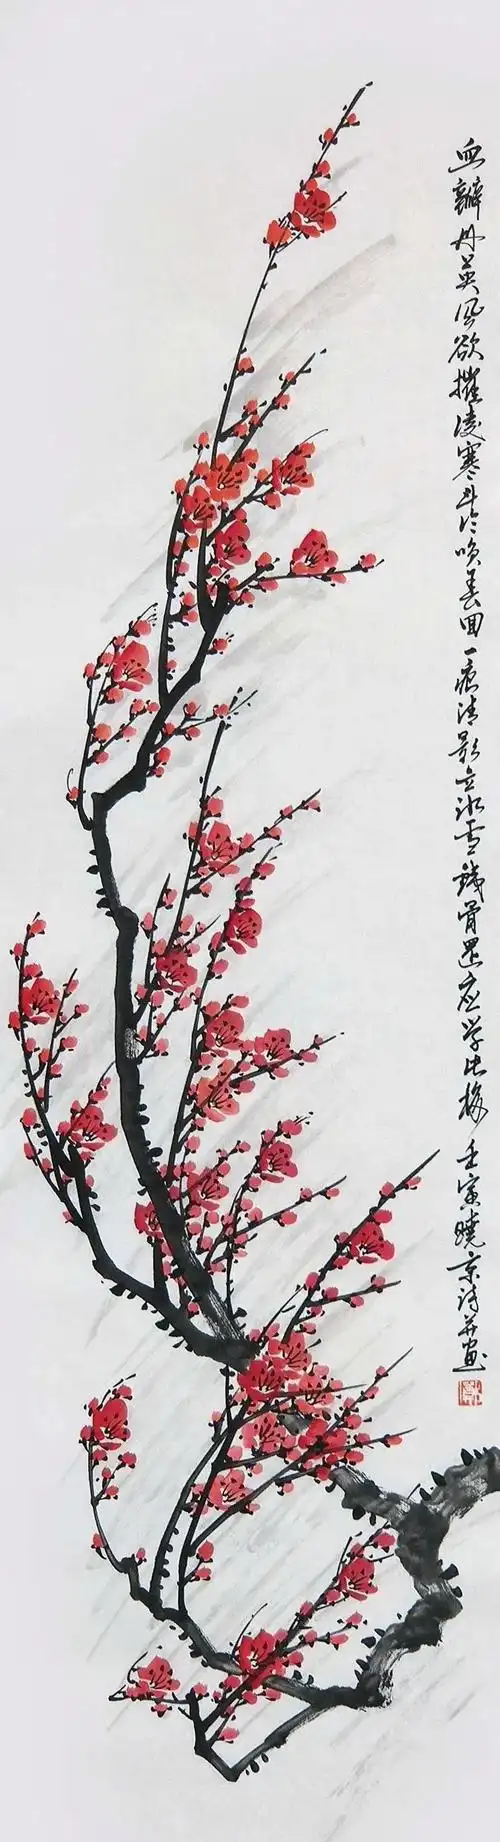 血瓣丹英风欲摧凌寒斗冷唤春回一痕清影立冰雪铁骨是应学此梅 壬寅晓京诗并画